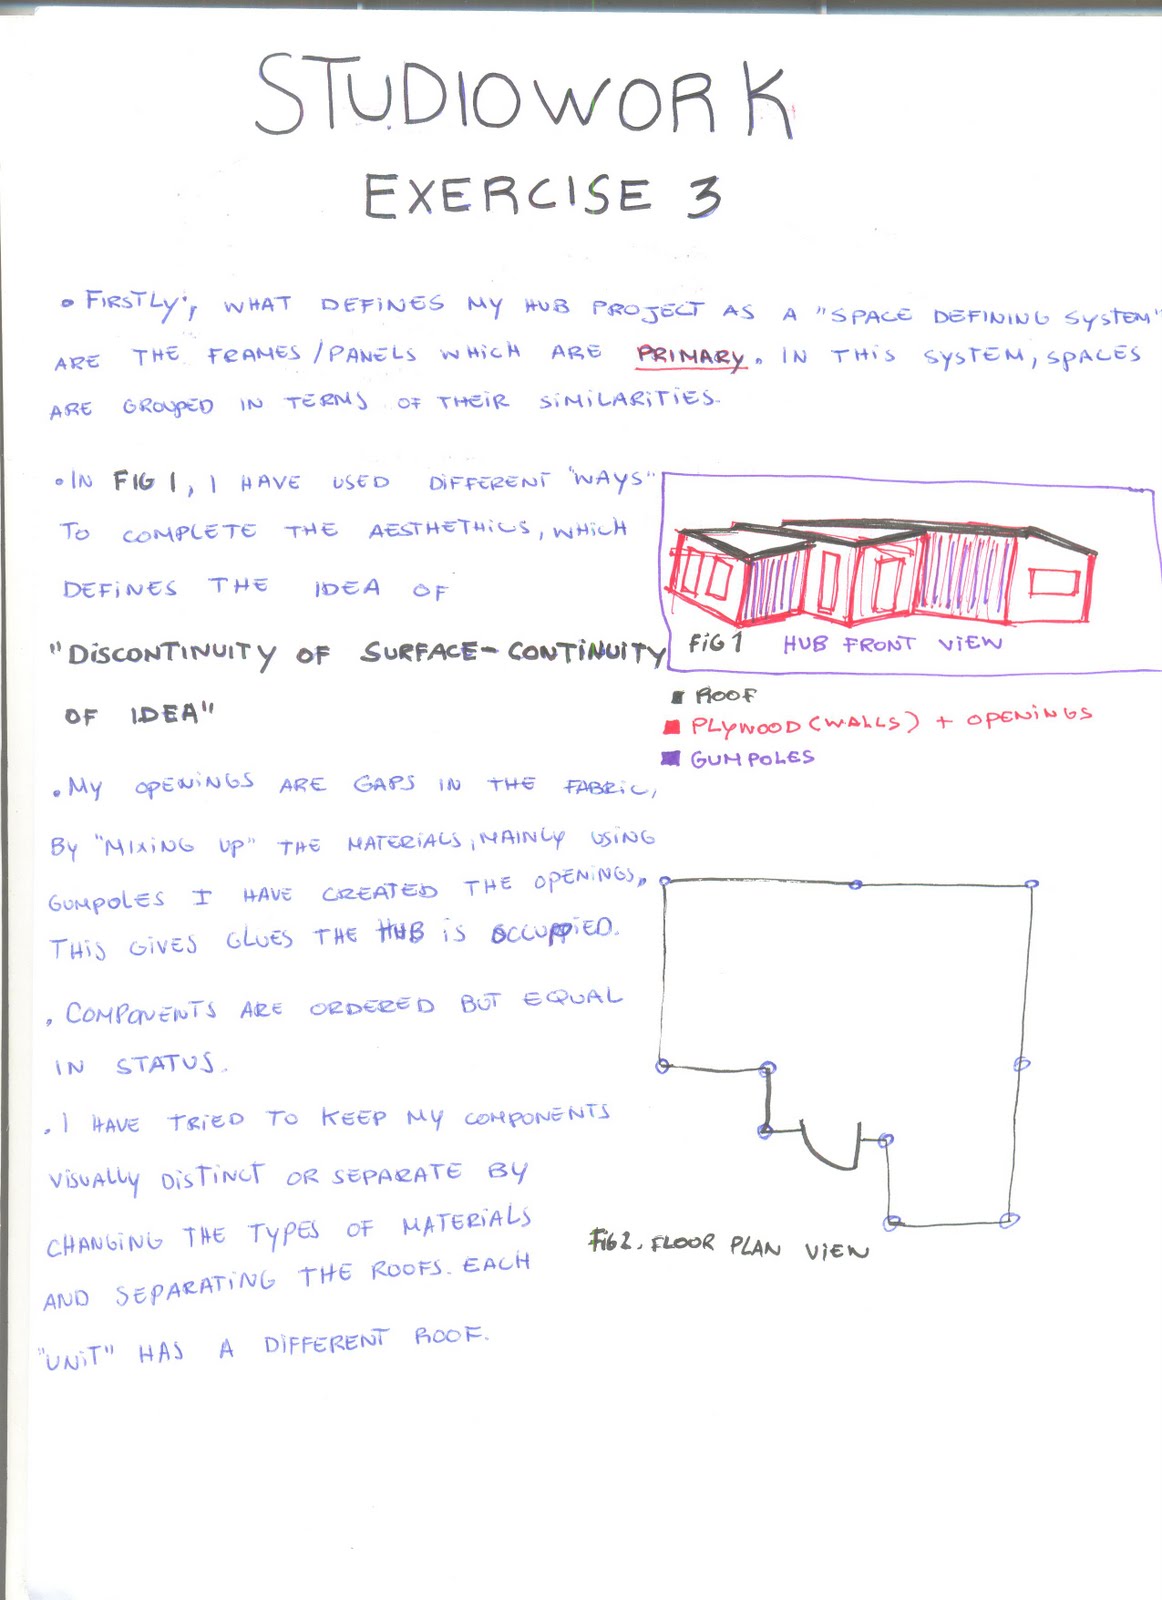 STUDIOWORK
EXERCISE 3
• FIRSTLY, WHAT DEFINES MY HUB PROJECT AS A "SPACE DEFINING SYSTEM"
ARE THE FRAMES/PANELS WHICH ARE PRIMARY. IN THIS SYSTEM, SPACES
ARE GROUPED IN TERMS OF THEIR SIMILARITIES.
• IN FIG 1, I HAVE USED DIFFERENT "WAYS"
TO COMPLETE THE AESTHETHICS, WHICH
DEFINES THE IDEA OF
"DISCONTINUITY OF SURFACE-CONTINUITY
OF IDEA"
FIG 1 HUB FRONT VIEW
ROOF
PLYWOOD (WALLS) + OPENINGS
GUMPOLES
• MY OPENINGS ARE GAPS IN THE FABRIC,
BY "MIXING UP" THE MATERIALS, MAINLY USING
GUMPOLES I HAVE CREATED THE OPENINGS,
THIS GIVES CLUES THE HUB IS OCCUPPIED.
• COMPONENTS ARE ORDERED BUT EQUAL
IN STATUS.
• I HAVE TRIED TO KEEP MY COMPONENTS
VISUALLY DISTINCT OR SEPARATE BY
CHANGING THE TYPES OF MATERIALS
AND SEPARATING THE ROOFS. EACH
"UNIT" HAS A DIFFERENT ROOF.
FIG 2. FLOOR PLAN VIEW